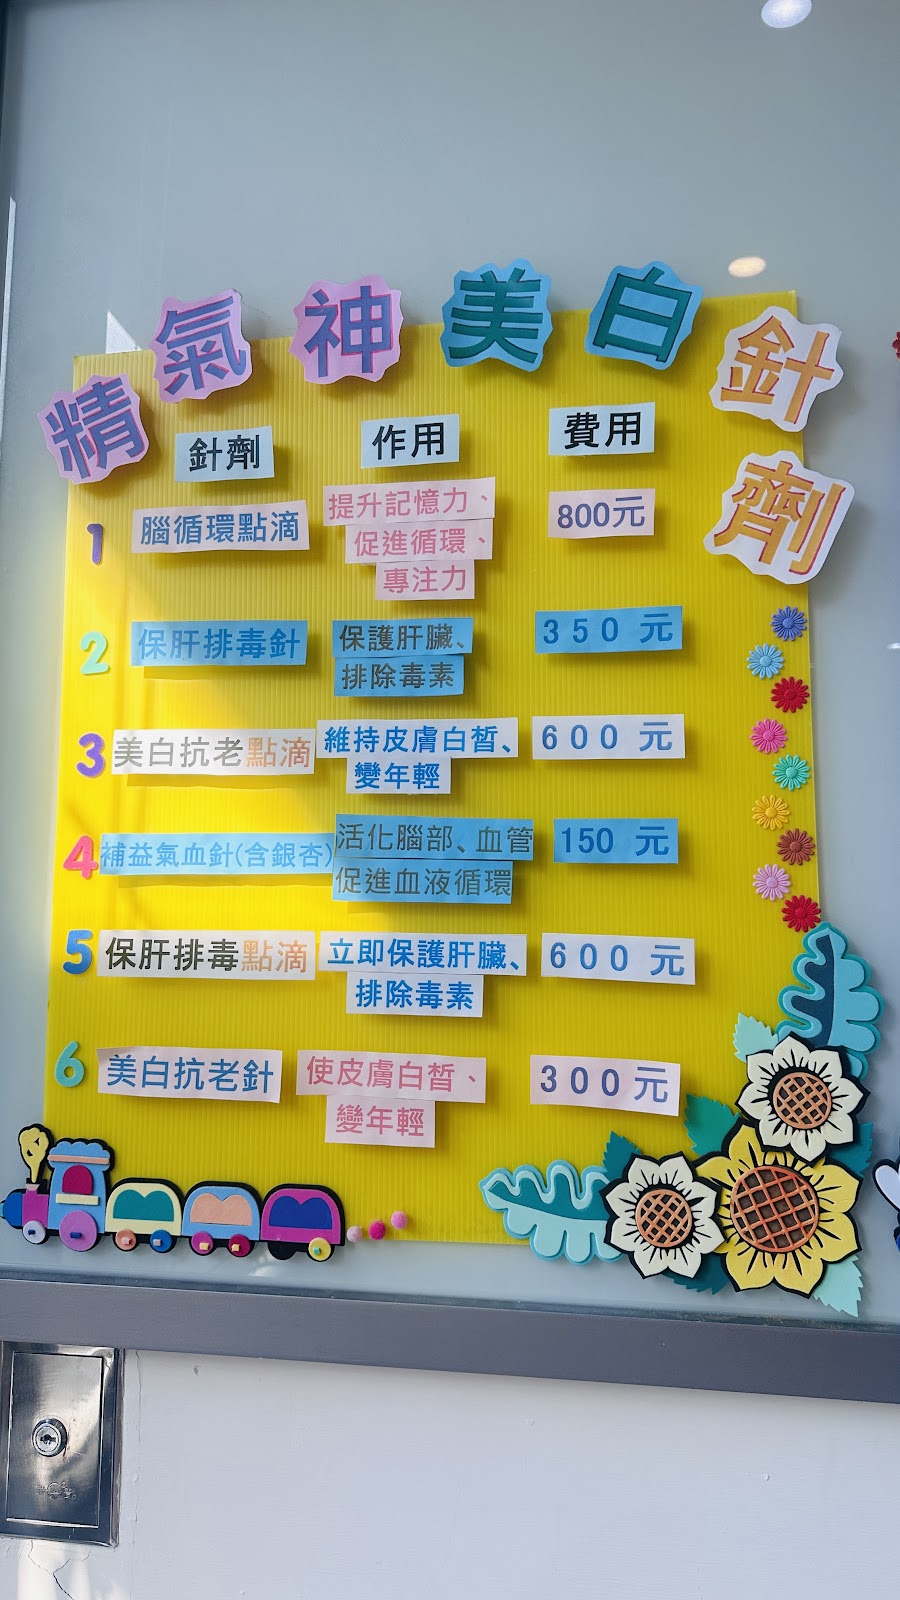 精氣神美白針劑
針劑 作用 費用
1 腦循環點滴 提升記憶力、 800元
促進循環、
專注力
2 保肝排毒針 保護肝臟、 350 元
排除毒素
3 美白抗老點滴 維持皮膚白皙、 600 元
變年輕
4 補益氣血針(含銀杏) 活化腦部、血管 150 元
促進血液循環
5 保肝排毒點滴 立即保護肝臟、 600 元
排除毒素
6 美白抗老針 使皮膚白皙、 300元
變年輕